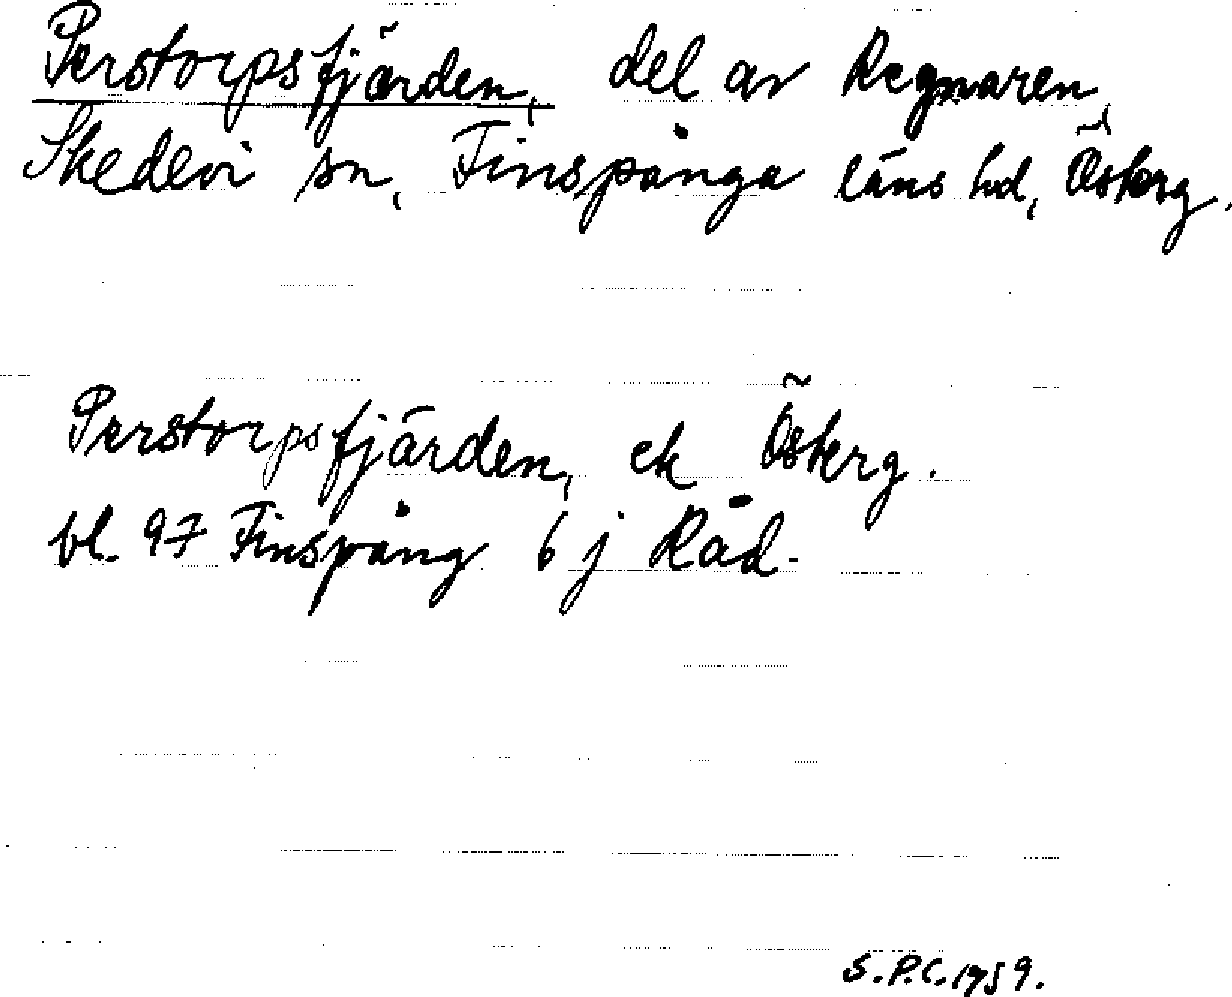 Perstorpsfjärden, del av Regnaren,
Skedevi sn, Finspånga läns hd, Österg.
Perstorpsfjärden, ek Österg.
bl. 97 Finspång 6 j Råd.
S.P.C. 1959.